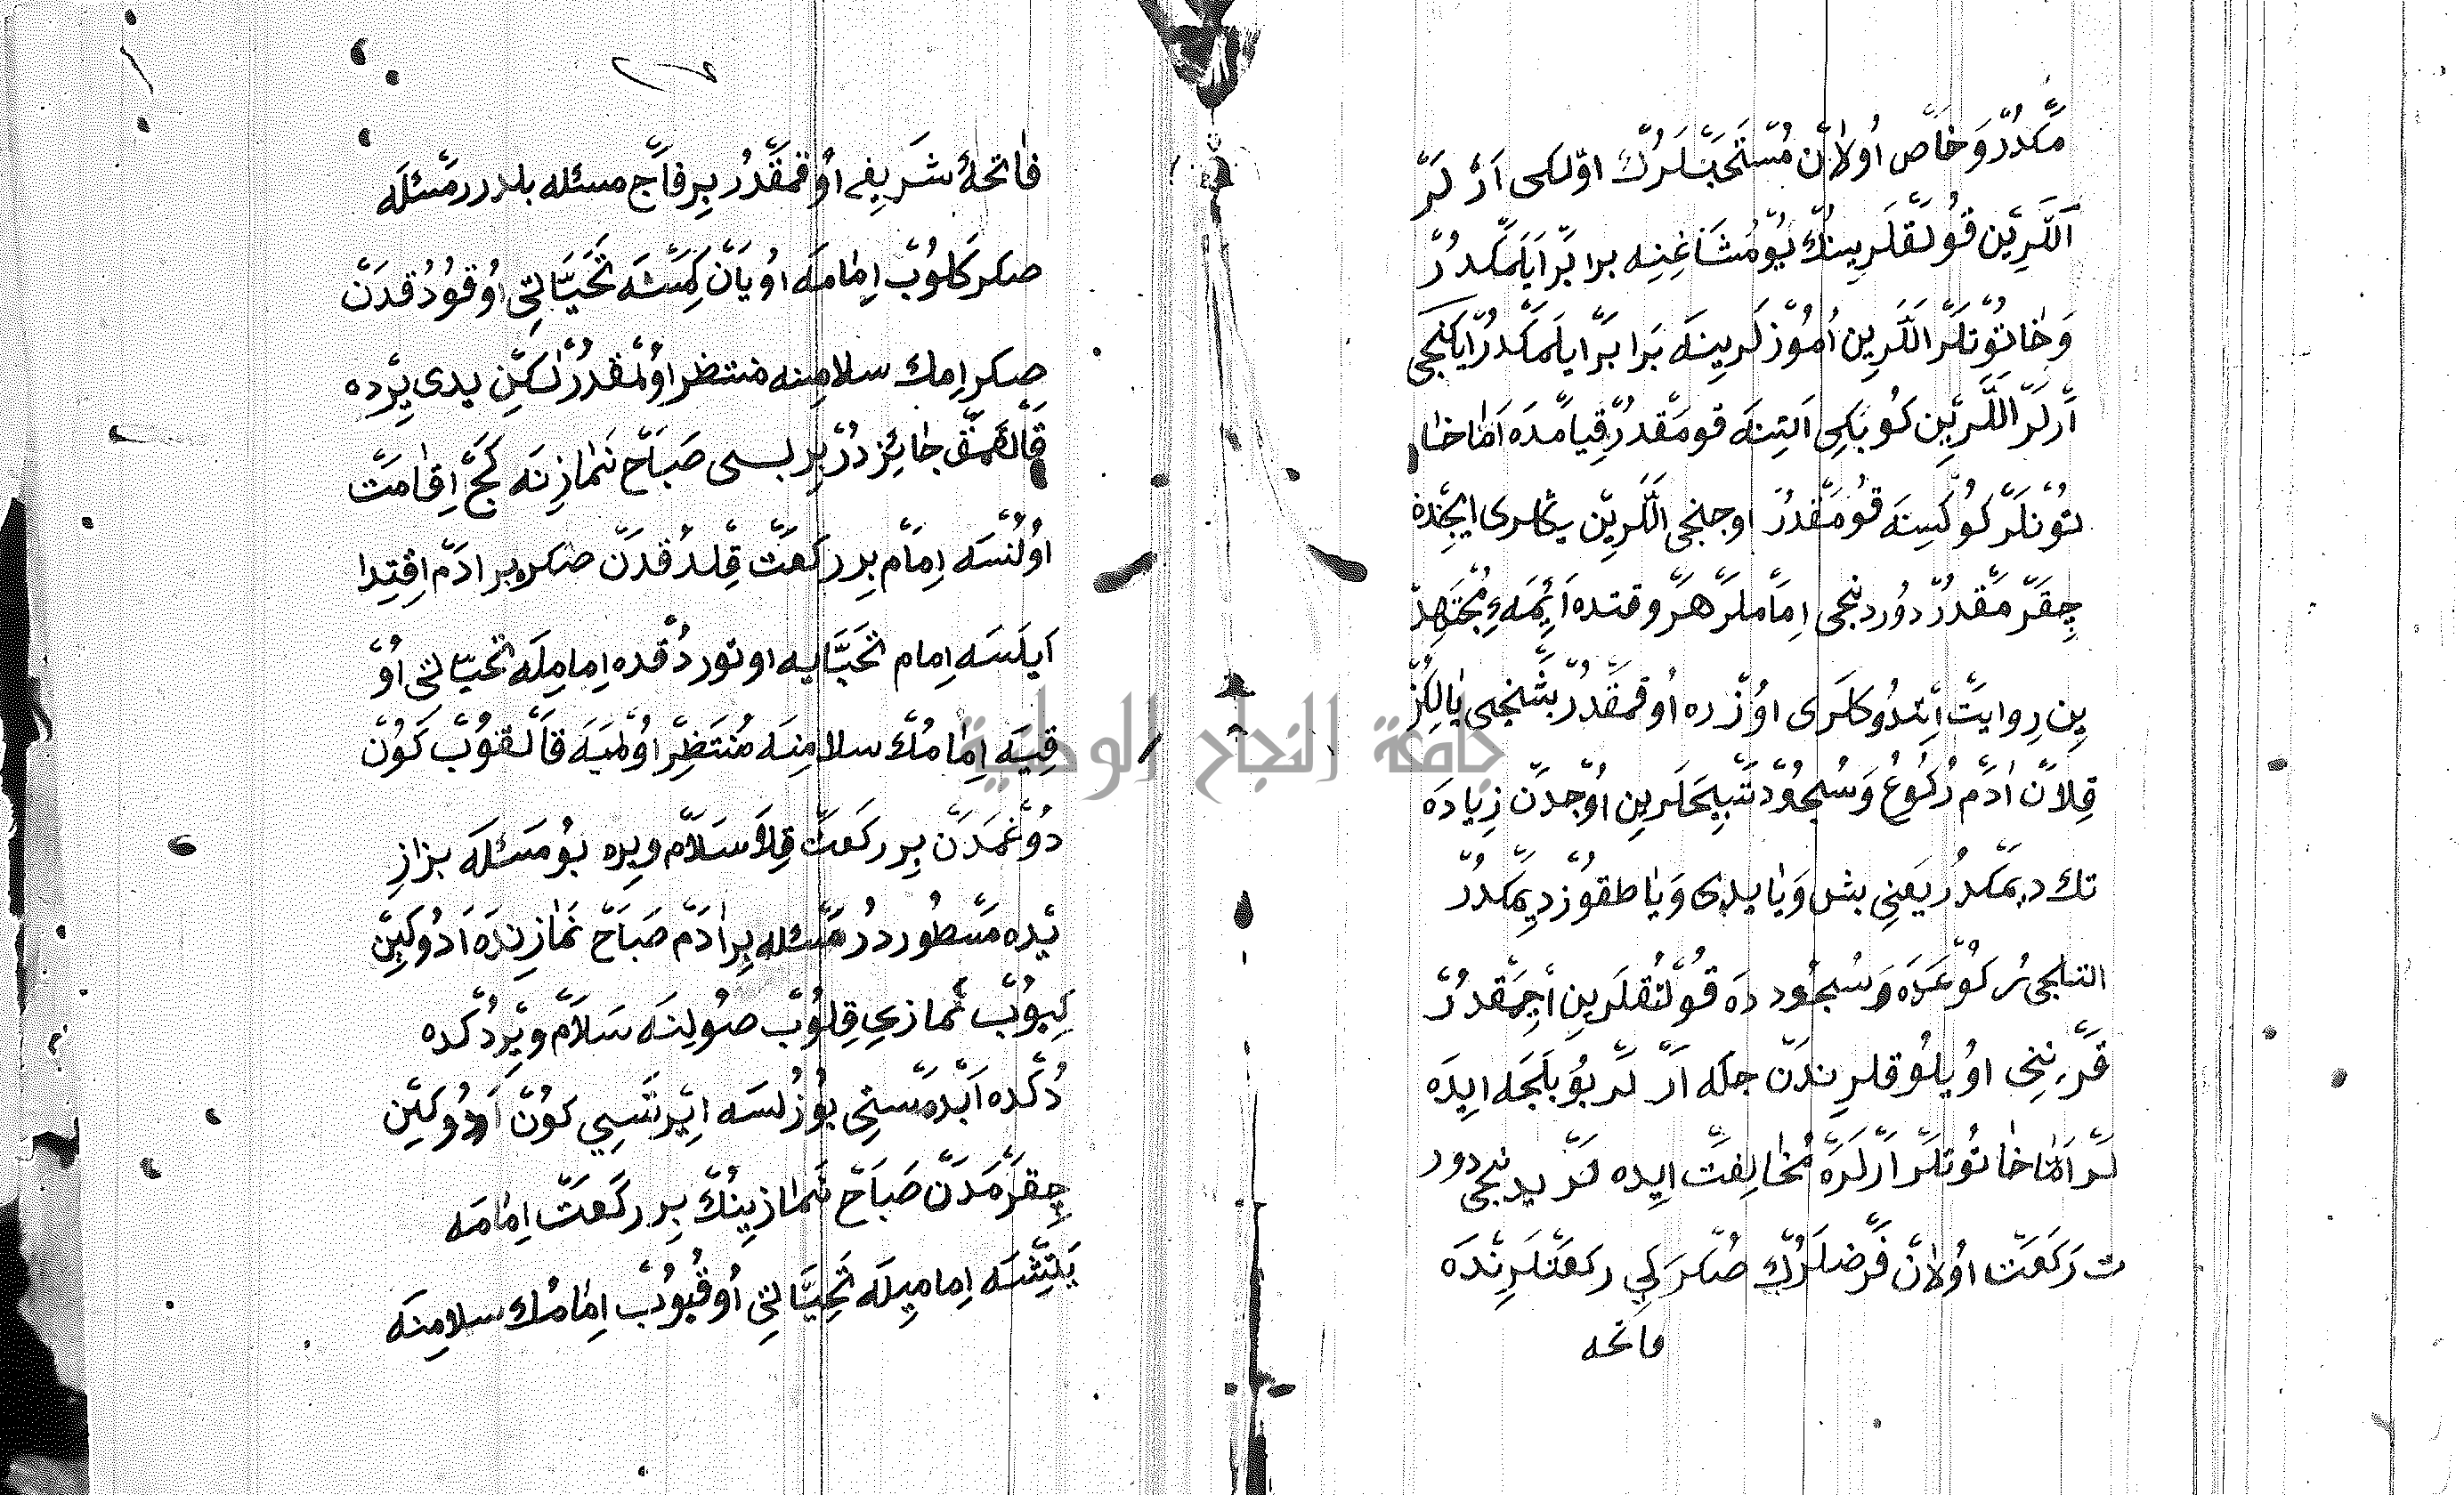 مكدر و خاص اولان مستحبلرك اولكى ار لر
اللرين قولقلرينك يومشاغنه برابر ايلمكدر
و خاتونلر اللرين اموزلرينه برابر ايلمكدر ايكنجى
ارلر اللرين كوبكى التنه قومقدر قيامده اما خا
تونلر كوكسنه قومقدر اوجنجى اللرين يكلرى ايچنده
چقرمقدر دوردنجى اماملر هر وقتده ائمه مجتهد
ين روايت ايتدوكلرى اوزره اوقمقدر بشنجى يالكز
قلان ادم ركوع و سجود تسبيحلرين اوجدن زياده
تك ديمكدر يعنى بش ويا يدى ويا طقوز ديمكدر
التنجى ركوعده و سجودده قولتقلرين اچمقدر
قرننى اويلوقلريندن جله ار لر بويلجه ايده
لر اما خاتونلر ارلره مخالفت ايده لر يدنجى دور
ت ركعت اولان فرضلرك صكره كى ركعتلرنده
فاتحه
فاتحۀ شريفى اوقمقدر بر قاج مسئله بلدرر مسئله
صكره كلوب امامه اويان كمسه تحياتى اوقودقدن
صكره امامك سلامنه منتظر اولمقدر لكن يدى يرده
قالقمق جائزدر بريسى صباح نمازنه كج اقامت
اولنسه امام بر ركعت قلدقدن صكره بر ادم اقتدا
ايلسه امام تحياته اوتوردقده اماميله تحياتى او
قييه امامك سلامنه منتظر اولميه قالقوب كون
دوغمدن بر ركعت قلا سلام ويره بو مسئله بزازِ
يده مسطوردر مسئله بر ادم صباح نمازنده ادوكين
كيوب نمازى قلوب صولنه سلام ويردكده
دكده ابدستى بوزلسه ايرتسى كون ادوكين
چقرمدن صباح نمازينك بر ركعت امامه
يتشسه اماميله تحياتى اوقيوب امامك سلامنه
جامعة النجاح الوطنية